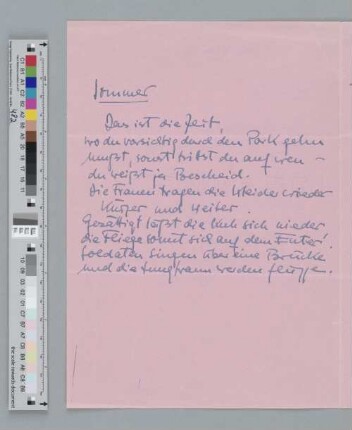 Sommer
Das ist die Zeit,
wo du vorsichtig durch den Park gehn
musst, sonst trittst du auf wen –
du weißt ja Bescheid.
Die Frauen tragen die Kleider wieder
kürzer und weiter.
Gesättigt läßt die Kuh sich nieder
die Fliege sonnt sich auf dem Euter.
Soldaten singen über eine Brücke
und die Jungfraun werden flügge.